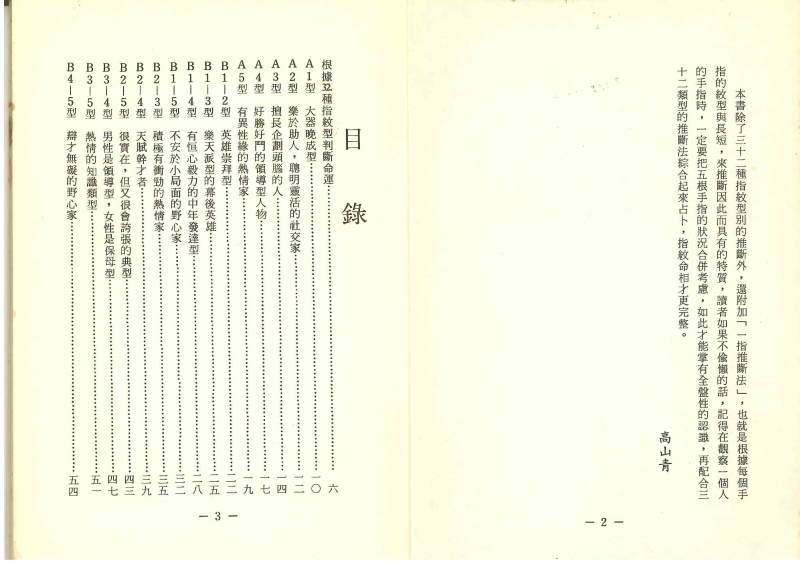 本書除了三十二種指紋型別的推斷外，還附加「一指推斷法」，也就是根據每個手
指的紋型與長短，來推斷因此而具有的特質，讀者如果不偷懶的話，記得在觀察一個人
的手指時，一定要把五根手指的狀況合併考慮，如此才能掌有全盤性的認識，再配合三
十二類型的推斷法綜合起來占卜，指紋命相才更完整。
高山青
— 2 —
目錄
根據32種指紋型判斷命運…………六
A1型 大器晚成型…………一〇
A2型 樂於助人，聰明靈活的社交家…………一二
A3型 擅長企劃頭腦的人…………一四
A4型 好勝好鬥的領導型人物…………一七
A5型 有異性緣的熱情家…………一九
B1—2型 英雄崇拜型…………二二
B1—3型 樂天派型的幕後英雄…………二五
B1—4型 有恒心毅力的中年發達型…………二八
B1—5型 不安於小局面的野心家…………三二
B2—3型 積極有衝勁的熱情家…………三五
B2—4型 天賦幹才者…………三九
B2—5型 很實在，但又很會誇張的典型…………四三
B3—4型 男性是領導型，女性是保母型…………四七
B3—5型 熱情的知識類型…………五一
B4—5型 辯才無礙的野心家…………五四
— 3 —